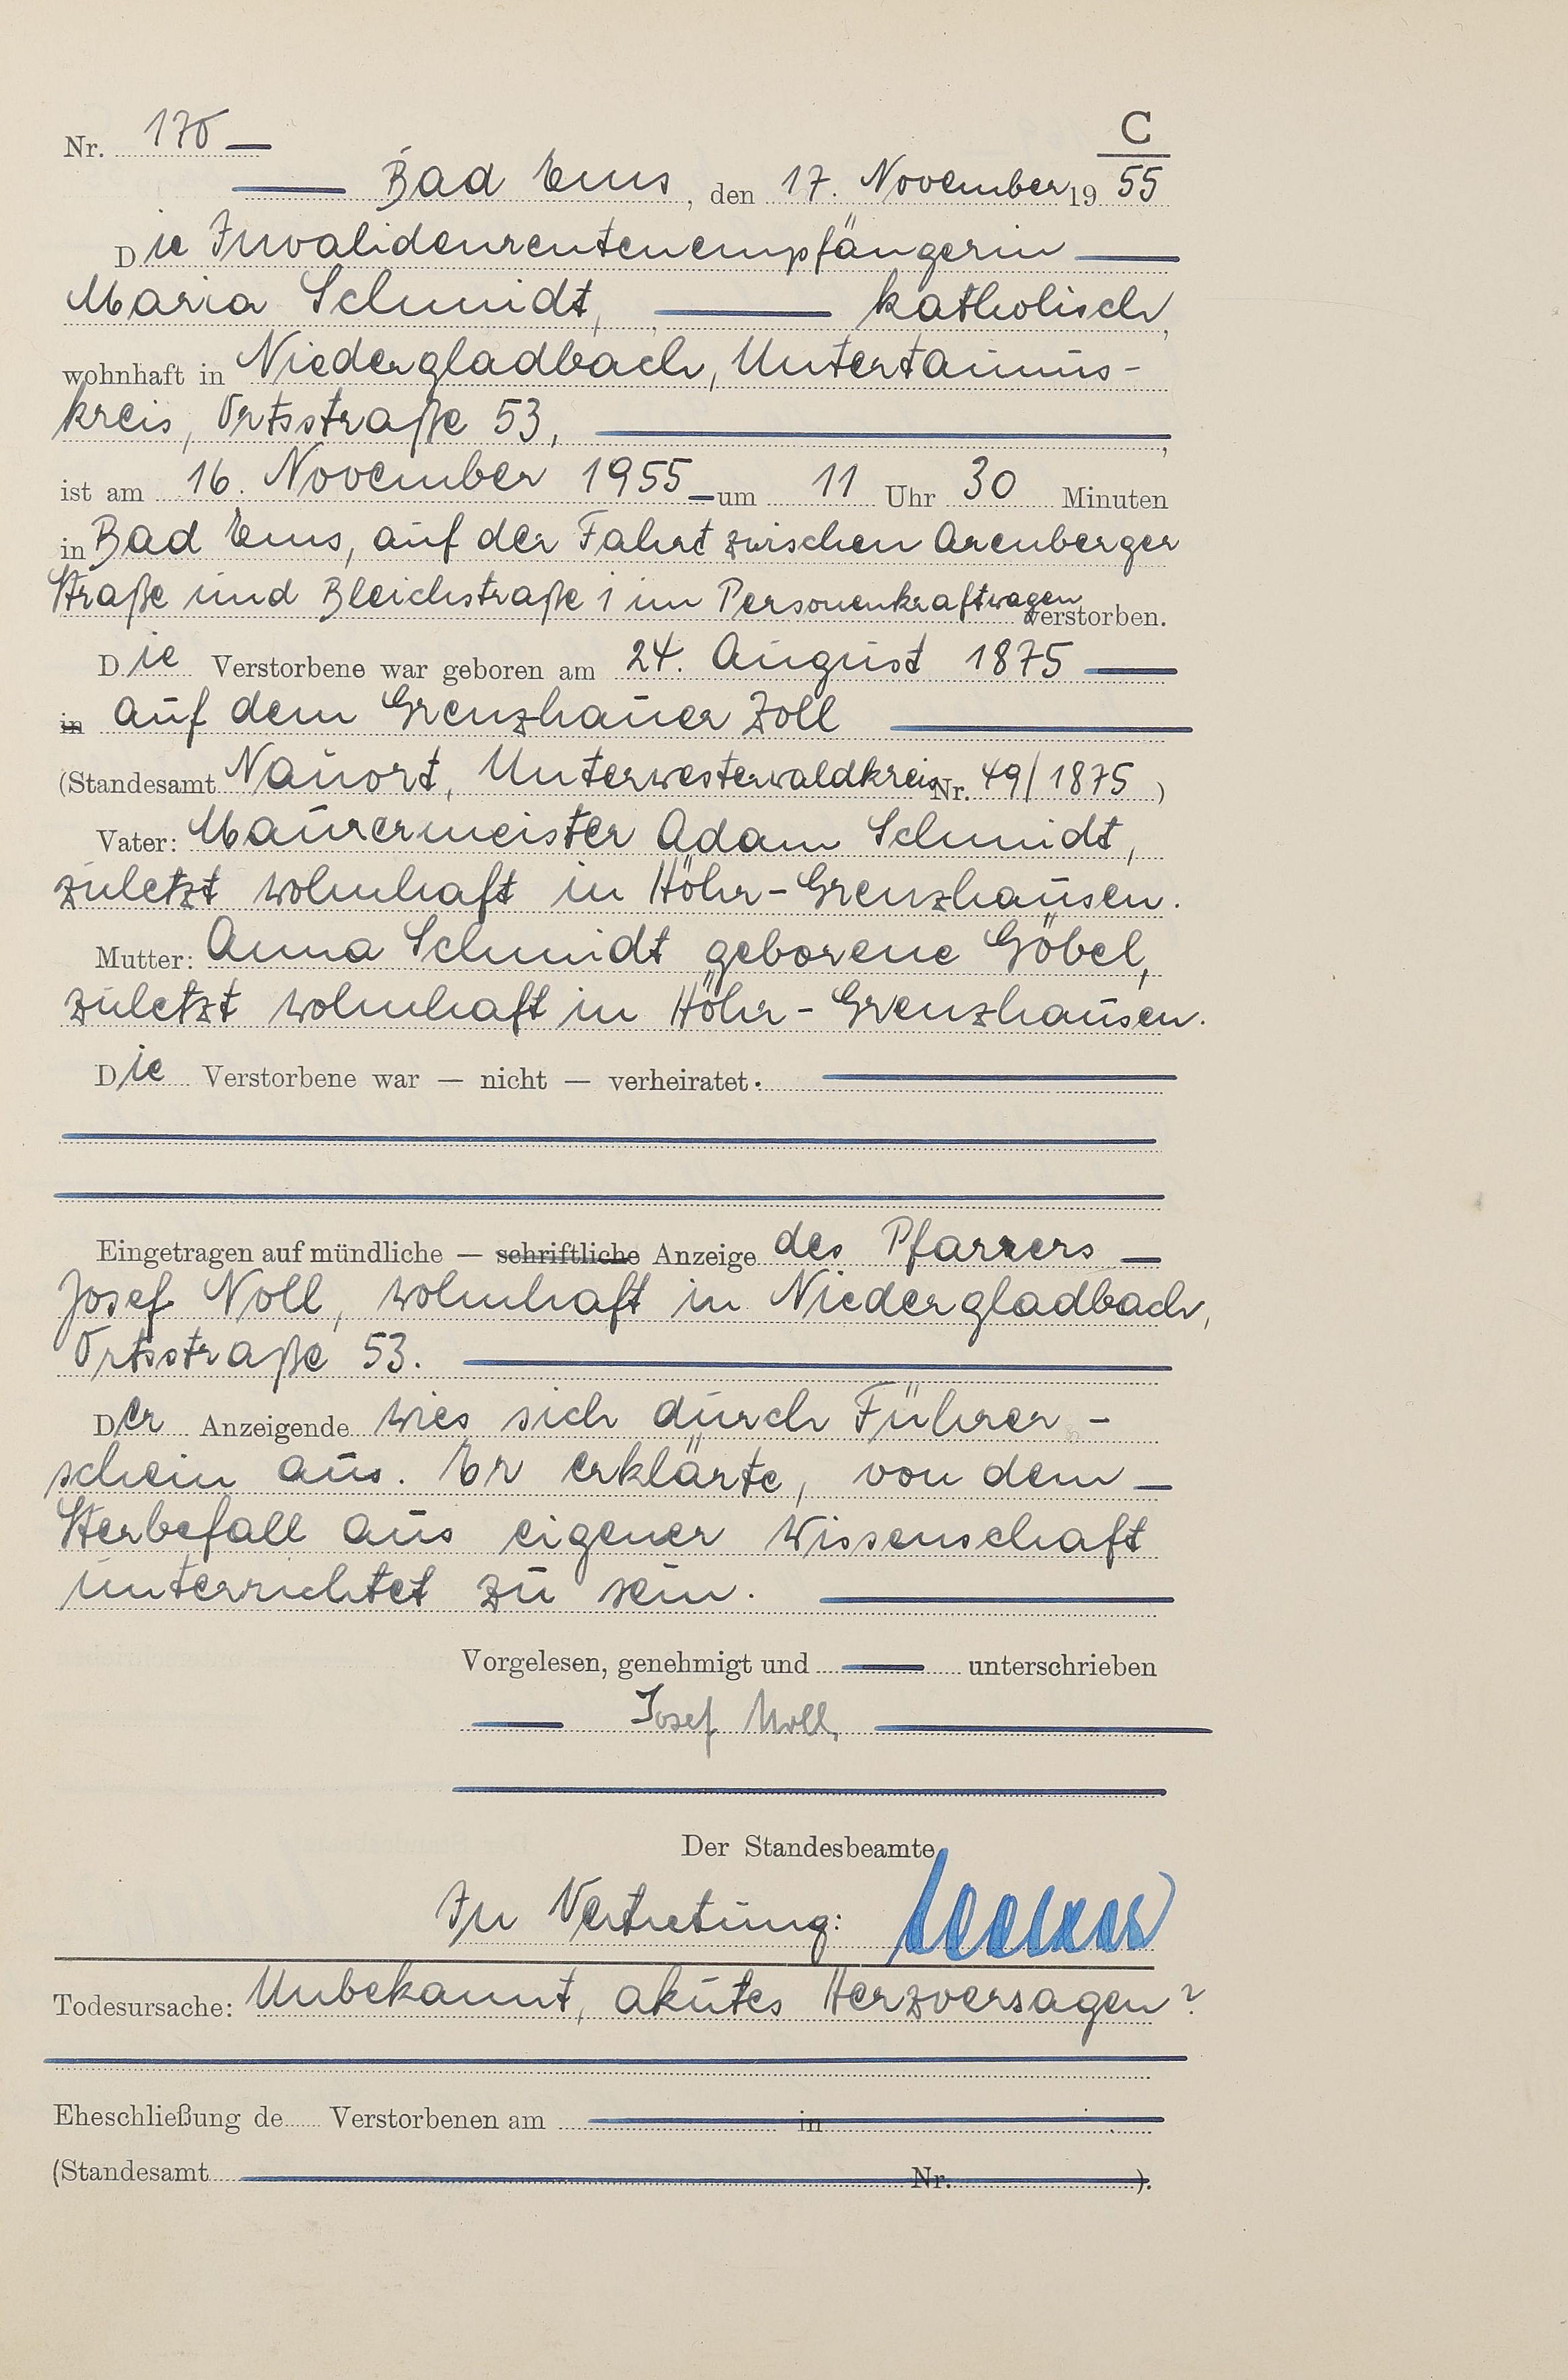 Nr. 170
C
Bad Ems, den 17. November 19 55
Die Invalidenrentenempfängerin
Maria Schmidt, katholisch,
wohnhaft in Niedergladbach, Untertaunus-
kreis, Ortsstraße 53,
ist am 16. November 1955 um 11 Uhr 30 Minuten
in Bad Ems, auf der Fahrt zwischen Arenberger
Straße und Bleichstraße 1 im Personenkraftwagen verstorben.
Die Verstorbene war geboren am 24. August 1875
in auf dem Grenzhauer Zoll
(Standesamt Nauort, Unterwesterwaldkreis Nr. 49/1875)
Vater: Maurermeister Adam Schmidt,
zuletzt wohnhaft in Höhr-Grenzhausen.
Mutter: Anna Schmidt geborene Göbel,
zuletzt wohnhaft in Höhr-Grenzhausen.
Die Verstorbene war — nicht — verheiratet.
Eingetragen auf mündliche — schriftliche Anzeige des Pfarrers
Josef Noll, wohnhaft in Niedergladbach,
Ortsstraße 53.
Der Anzeigende wies sich durch Führer-
schein aus. Er erklärte, von dem
Sterbefall aus eigener Wissenschaft
unterrichtet zu sein.
Vorgelesen, genehmigt und unterschrieben
Josef Noll,
Der Standesbeamte
In Vertretung:
Todesursache: Unbekannt, akutes Herzversagen?
Eheschließung de Verstorbenen am in
(Standesamt Nr. ).